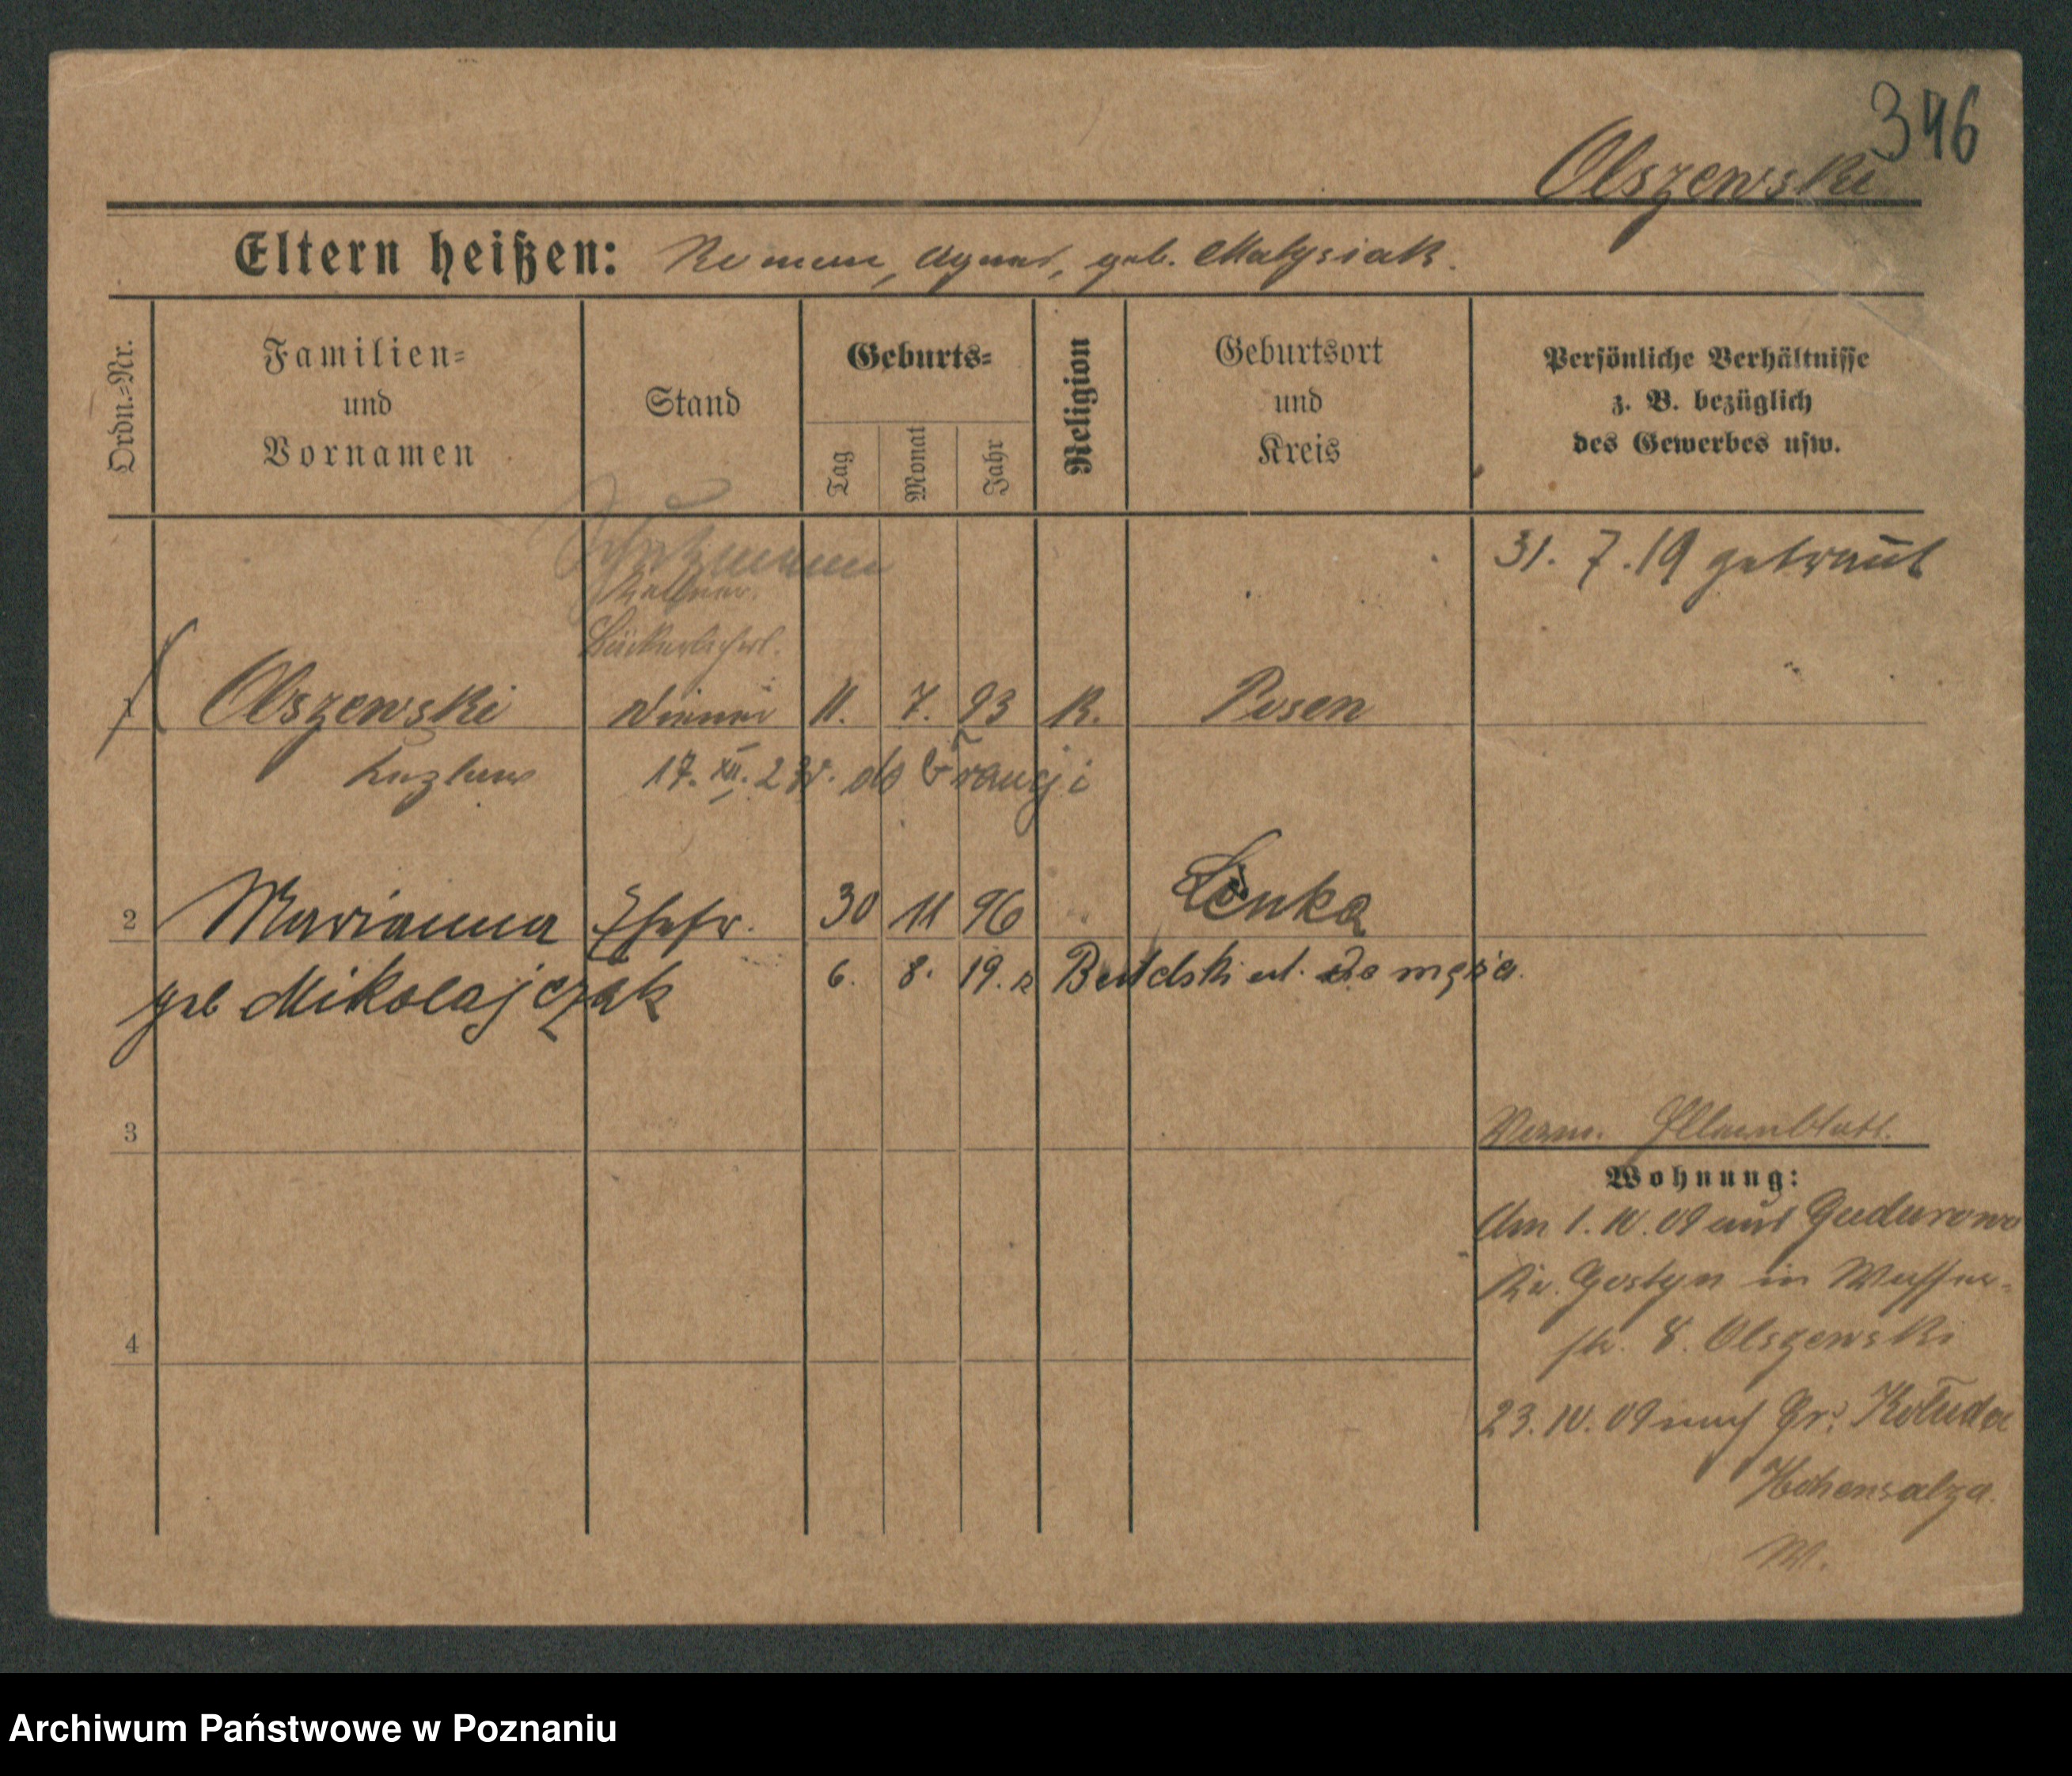 346
Olszewski
Eltern heißen: Roman, Agnes, geb. Matysiak.
Ordn.=Nr.
Familien=
und
Vornamen
Stand
Geburts=
Tag
Monat
Jahr
Religion
Geburtsort
und
Kreis
Persönliche Verhältnisse
z. B. bezüglich
des Gewerbes usw.
31. 7. 19 getraut
Schutzmann
Kellner.
Bäckerlehrl.
1 Olszewski Diener 11. 7. 93 K. Posen
17. XII. 23 r. do Francji
2 Marianna Ehefr. 30 11 96 Lenka
geb Mikolajczak 6. 8. 19. z do męża.
3
Wohnung:
Am 1. IV. 09 aus Gudurowo
Kr. Gostyn in Wasser-
str. 8. Olszewski
4
23. IV. 09 nach Gr. Koluda
Hohensalza.
M.
Archiwum Państwowe w Poznaniu